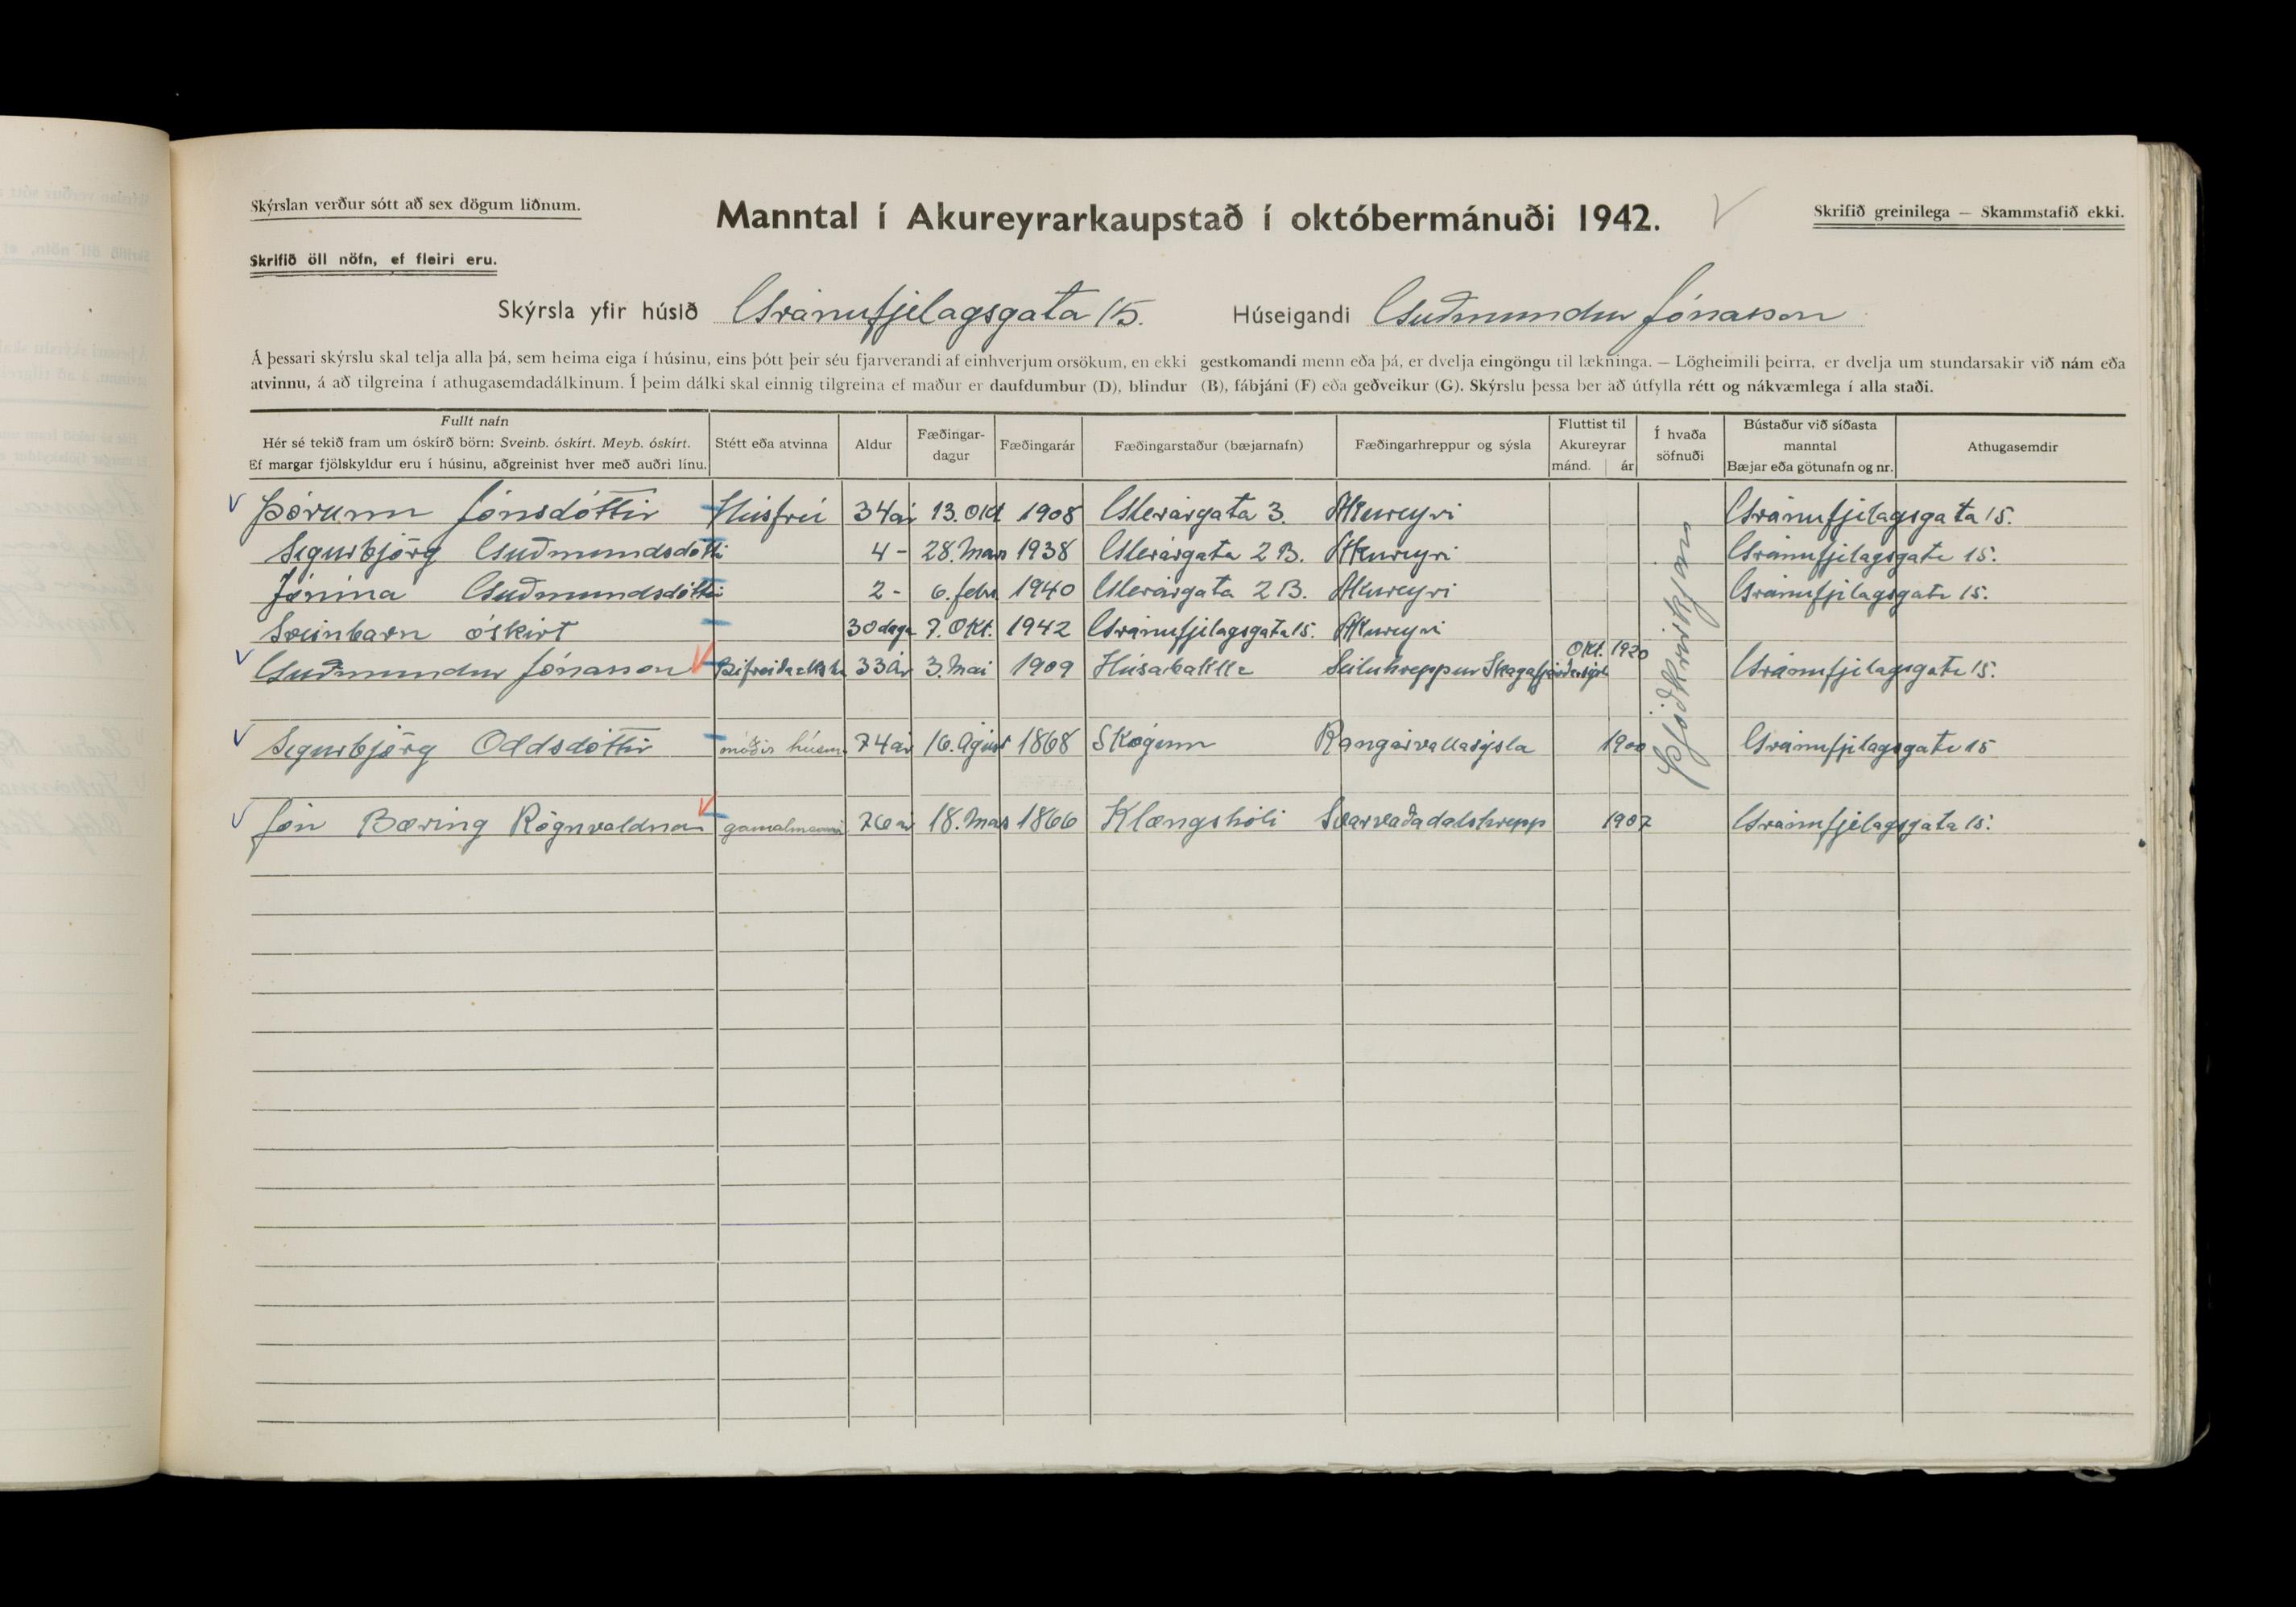 Skýrslan verður sótt að sex dögum liðnum.
Manntal í Akureyrarkaupstað í októbermánuði 1942.
Skrifið greinilega — Skammstafið ekki.
Skrifið öll nöfn, ef fleiri eru.
Skýrsla yfir húsið Gránufjelagsgata 15. Húseigandi Guðmundur Jónasson
Á þessari skýrslu skal telja alla þá, sem heima eiga í húsinu, eins þótt þeir séu fjarverandi af einhverjum orsökum, en ekki gestkomandi menn eða þá, er dvelja eingöngu til lækninga. — Lögheimili þeirra, er dvelja um stundarsakir við nám eða
atvinnu, á að tilgreina í athugasemdadálkinum. Í þeim dálki skal einnig tilgreina ef maður er daufdumbur (D), blindur (B), fábjáni (F) eða geðveikur (G). Skýrslu þessa ber að útfylla rétt og nákvæmlega í alla staði.
Fullt nafn
Hér sé tekið fram um óskírð börn: Sveinb. óskírt. Meyb. óskírt.
Ef margar fjölskyldur eru í húsinu, aðgreinist hver með auðri línu.
Stétt eða atvinna
Aldur
Fæðingar-
dagur
Fæðingarár
Fæðingarstaður (bæjarnafn)
Fæðingarhreppur og sýsla
Fluttist til
Akureyrar
mánd. ár
Í hvaða
söfnuði
Bústaður við síðasta
manntal
Bæjar eða götunafn og nr.
Athugasemdir
Þórunn Jónsdóttir Húsfrú 34 ár 13. Okt 1908 Glerárgata 3. Akureyri Gránufjelagsgata 15.
Sigurbjörg Guðmundsdótti 4 - 28. Mars 1938 Glerárgata 2 B. Akureyri Gránufjelagsgata 15.
Jónína Guðmundsdóttir 2 - 6. febr 1940 Glerárgata 2 B. Akureyri Gránufjelagsgata 15.
Sveinbarn óskírt 30 daga 7. Okt. 1942 Gránufjelagsgata 15. Akureyri
Guðmundur Jónasson 33 ár 3. Mai 1909 Húsabakka Seiluhreppur Skagafjarðarsýsla Okt. 1920 Gránufjelagsgata 15.
Sigurbjörg Oddsdóttir móðir húsm. 74 ár 16. Ágúst 1868 Skógum Rangárvallasýsla 1900 Gránufjelagsgata 15
Jón Bæring Rögnvaldsson gamalmenni 76 ár 18. Mars 1866 Klængshóli Svarvaðadalshrepp 1907 Gránufjelagsgata 15.
Þjóðkirkjan